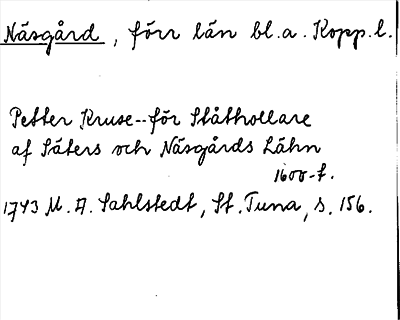 Näsgård, förr län bl.a. Kopp.l.
Petter Kruse--för Ståthollare
af Säters och Näsgårds Lähn
1600-t.
1743 M. A. Sahlstedt, St. Tuna, s. 156.